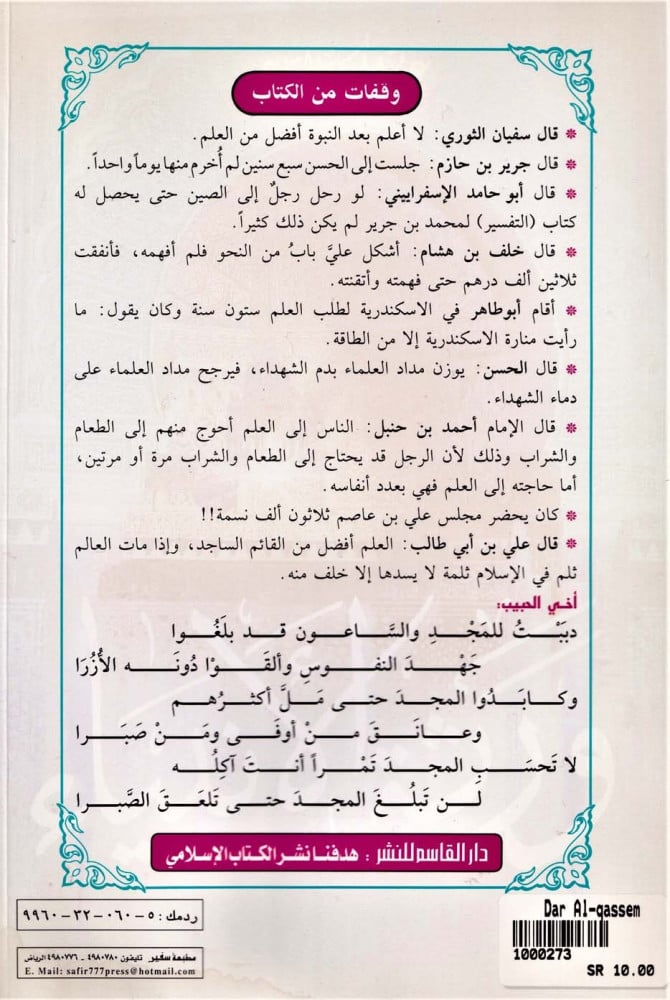 وقفات من الكتاب
* قال سفيان الثوري: لا أعلم بعد النبوة أفضل من العلم.
* قال جرير بن حازم: جلست إلى الحسن سبع سنين لم أُخرم منها يوماً واحداً.
* قال أبو حامد الإسفراييني: لو رحل رجلٌ إلى الصين حتى يحصل له
كتاب (التفسير) لمحمد بن جرير لم يكن ذلك كثيراً.
* قال خلف بن هشام: أشكل عليَّ بابُ من النحو فلم أفهمه، فأنفقت
ثلاثين ألف درهم حتى فهمته وأتقنته.
* أقام أبوطاهر في الاسكندرية لطلب العلم ستون سنة وكان يقول: ما
رأيت منارة الاسكندرية إلا من الطاقة.
* قال الحسن: يوزن مداد العلماء بدم الشهداء، فيرجح مداد العلماء على
دماء الشهداء.
* قال الإمام أحمد بن حنبل: الناس إلى العلم أحوج منهم إلى الطعام
والشراب وذلك لأن الرجل قد يحتاج إلى الطعام والشراب مرة أو مرتين،
أما حاجته إلى العلم فهي بعدد أنفاسه.
* كان يحضر مجلس علي بن عاصم ثلاثون ألف نسمة!!
* قال علي بن أبي طالب: العلم أفضل من القائم الساجد، وإذا مات العالم
ثلم في الإسلام ثلمة لا يسدها إلا خلف منه.
أخي الحبيب:
دببْتُ للمَجْدِ والسَّاعون قد بلَغُوا
جَهْدَ النفوسِ وألقَوْا دُونَه الأُزُرَا
وكابَدُوا المجدَ حتى مَلَّ أكثرُهم
وعانَقَ منْ أوفَى ومَنْ صَبَرا
لا تَحسَبِ المجدَ تَمْراً أنتَ آكِلُه
لن تَبلُغَ المجدَ حتى تَلعَقَ الصَّبرا
دار القاسم للنشر : هدفنا نشر الكتاب الإسلامي
ردمك: ٥-٠٦٠-٣٢-٩٩٦٠
مطبعة سفير تليفون ٤٩٨٠٧٨٠ - ٤٩٨٠٧٧٦ الرياض
E. Mail: safir777press@hotmail.com
Dar Al-qassem
1000273
SR 10.00